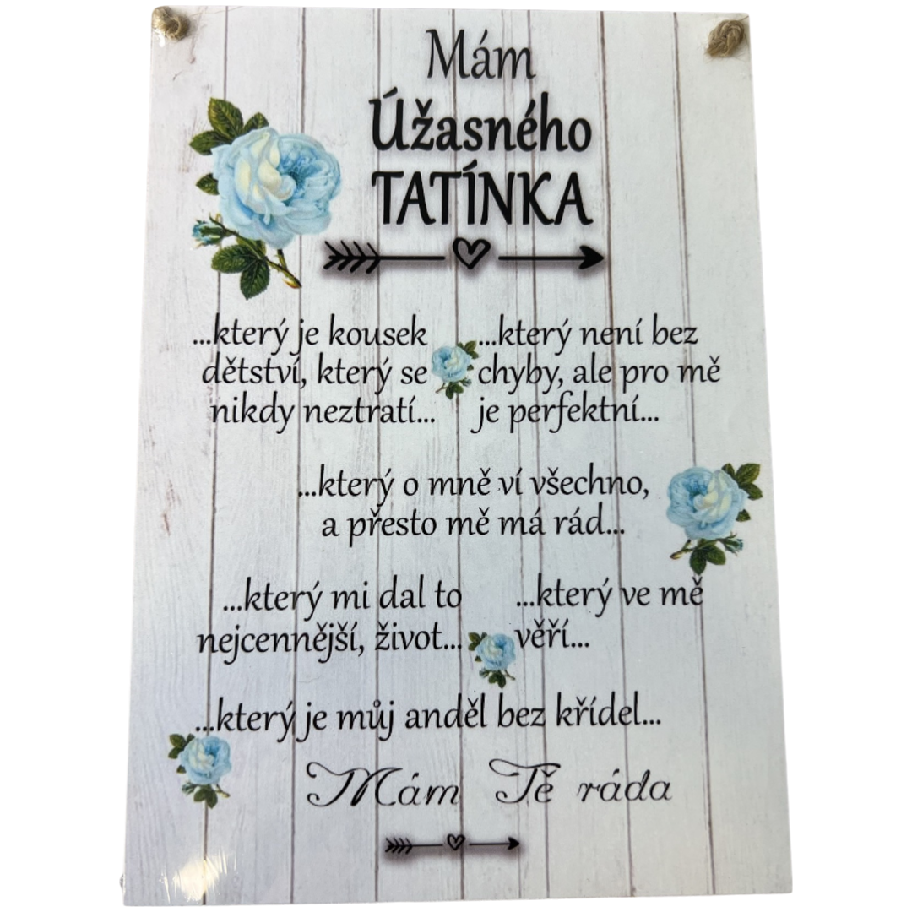 Mám
Úžasného
TATÍNKA
...který je kousek
dětství, který se
nikdy neztratí...
...který není bez
chyby, ale pro mě
je perfektní...
...který o mně ví všechno,
a přesto mě má rád...
...který mi dal to
nejcennější, život...
...který ve mě
věří...
...který je můj anděl bez křídel...
Mám Tě ráda